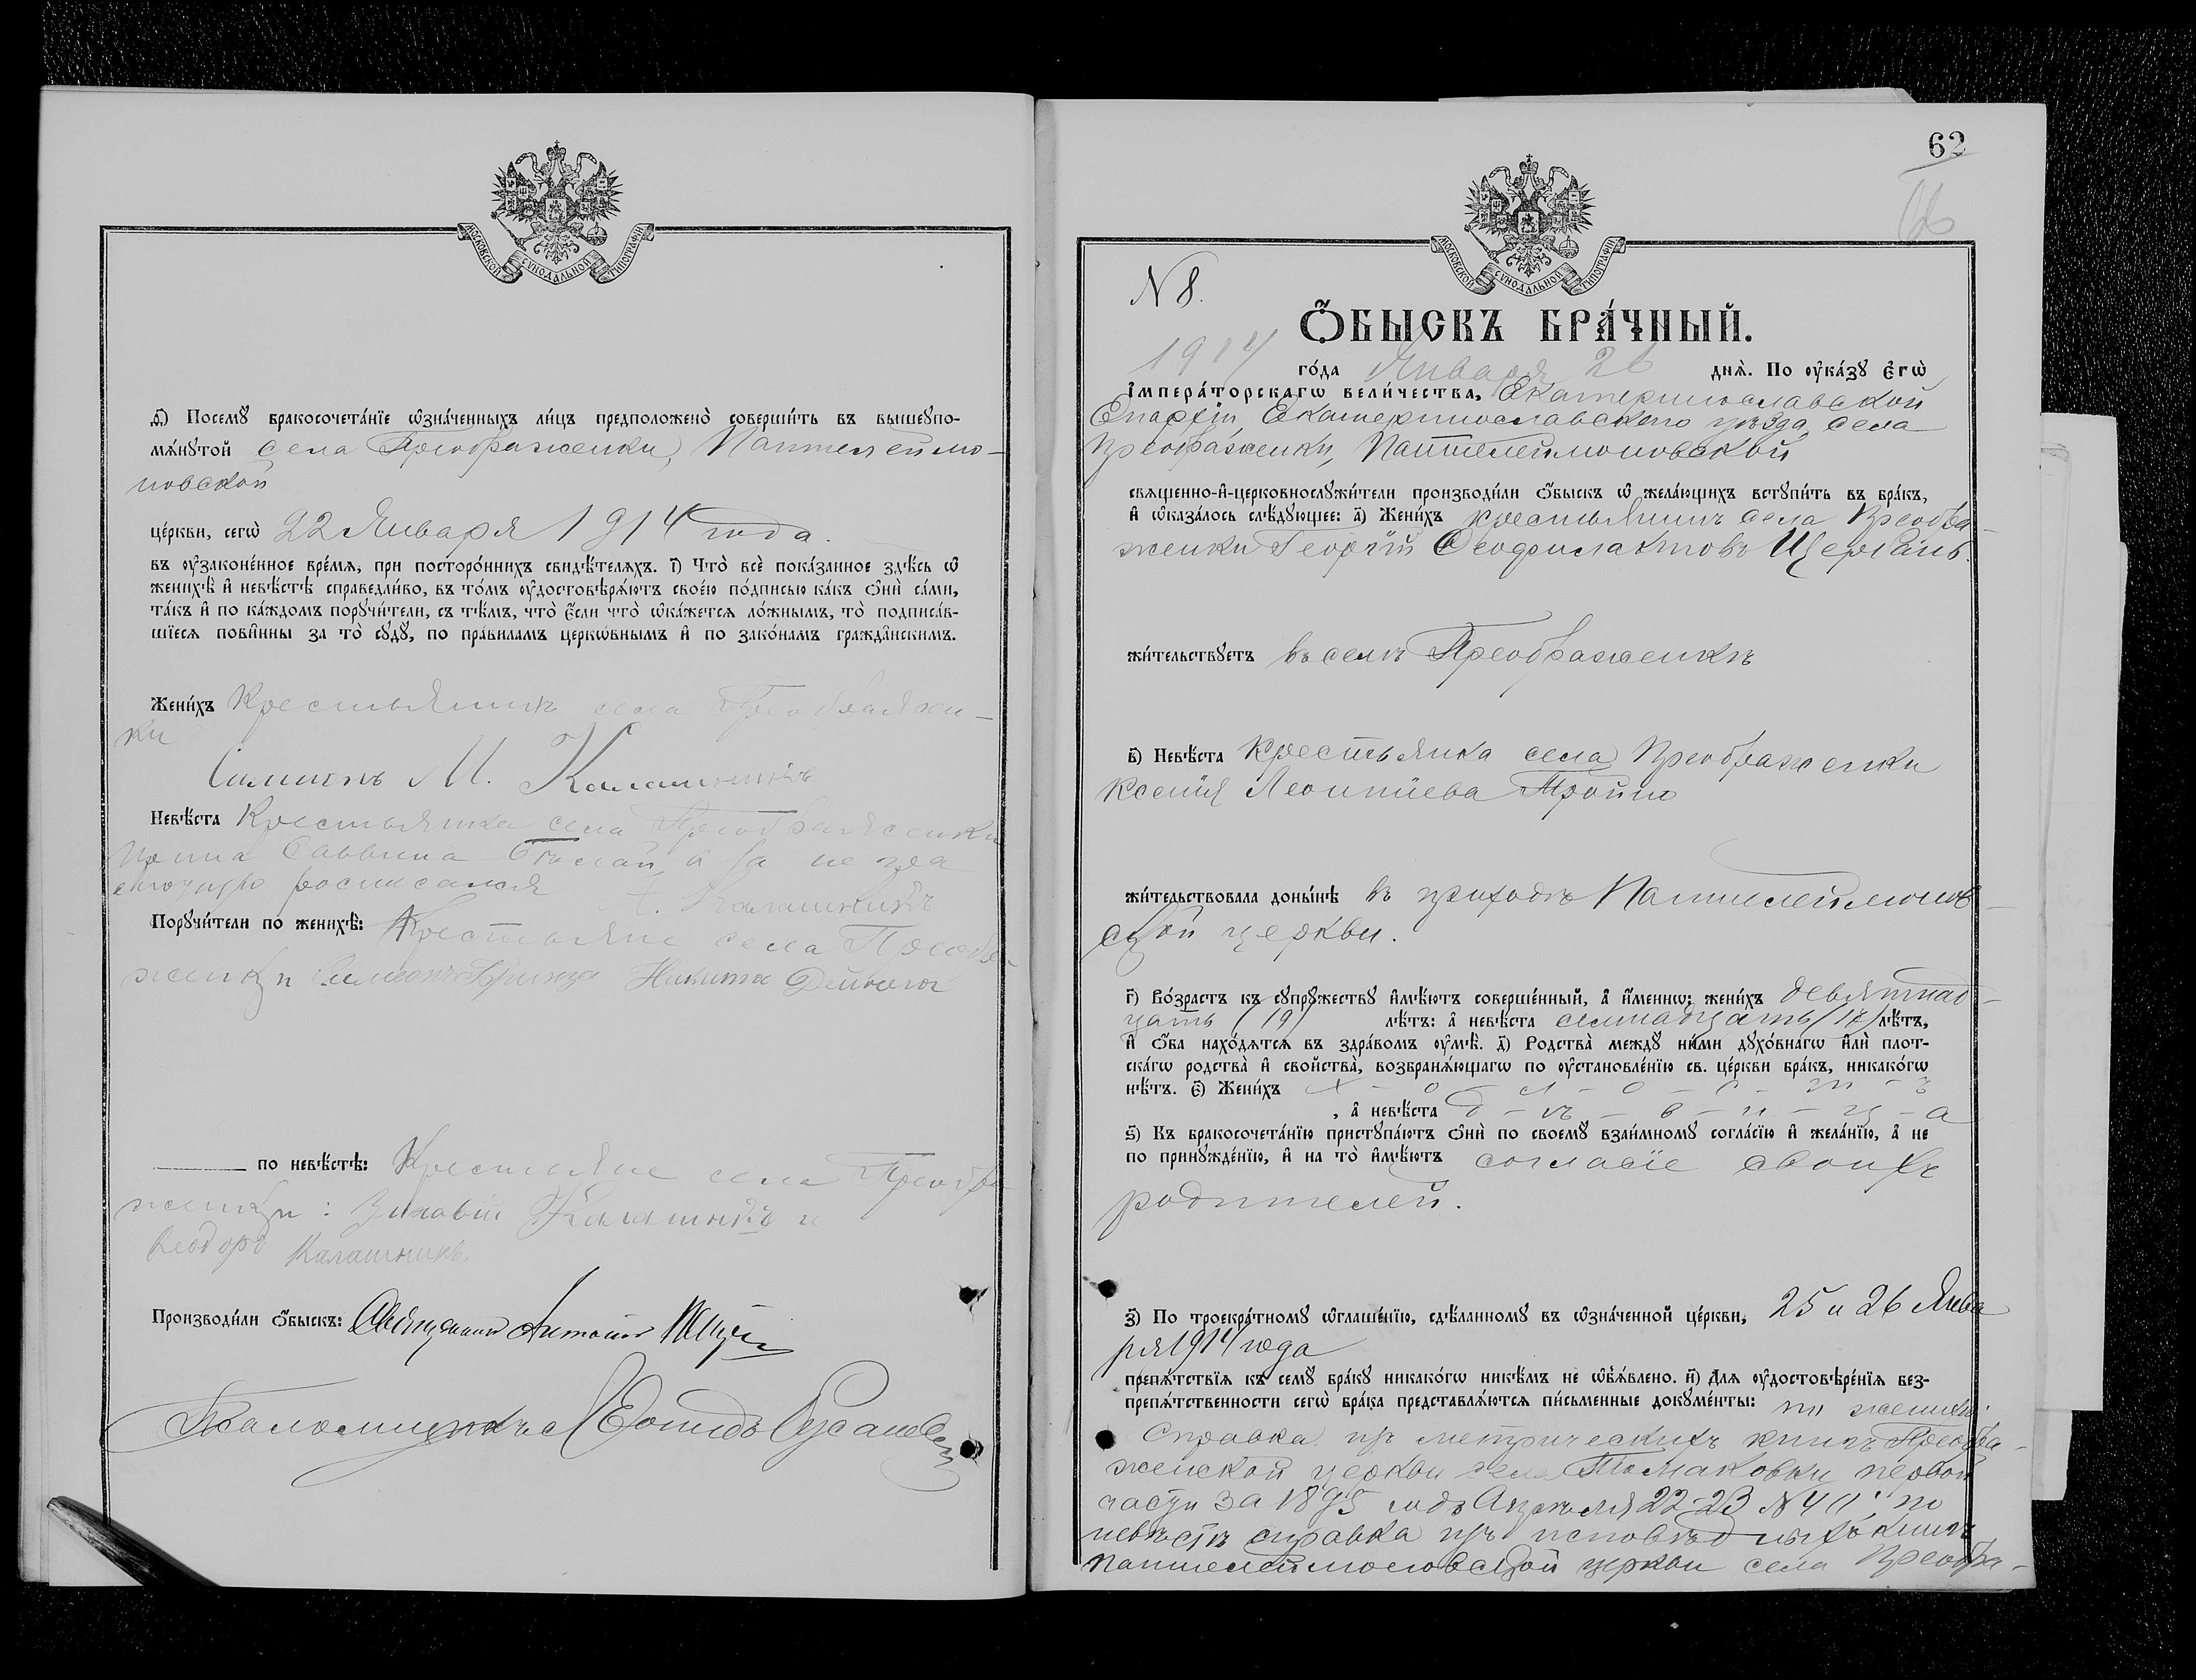 МОСКОВСКОЙ СѴНОДАЛЬНОЙ ТИПОГРАФІИ
д҃) Посемꙋ бракосочета́нїе ѡ҆зна́ченныхъ ли́цъ предположено̀ соверши́ть въ вышеꙋпо-
мѧ́нꙋтой села Преображенки, Пантелеймо-
новской
це́ркви, сегѡ̀ 22 Января 1914 года.
въ ᲂу҆законе́нное вре́мѧ, при посторо́ннихъ свидѣ́телѧхъ. і҃) Что̀ всѐ пока́занное здѣ́сь ѡ҆
женихѣ̀ и҆ невѣ́стѣ справедли́во, въ то́мъ ᲂу҆достовѣрѧ́ютъ свое́ю по́дписью ка́къ ѻ҆нѝ са́ми,
та́къ и҆ по ка́ждомъ порꙋчи́тели, съ тѣ́мъ, что̀ є҆́сли что̀ ѡ҆ка́жетсѧ ло́жнымъ, то̀ подписа́в-
шїесѧ пови́нны за то̀ сꙋдꙋ̀, по пра́виламъ церкѡ́внымъ и҆ по зако́намъ гражда̂нскимъ.
Жени́хъ Крестьянинъ села Преображен-
ки
Симионъ М. Калашникъ
Невѣ́ста Крестьянка села Преображенки
Саввина а за не гра
росписался А. Калашникъ
Порꙋчи́тели по женихѣ̀: Крестьяне села Преобра-
женки Симеонъ Никита
по невѣ́стѣ: Крестьяне села Преобра-
женки: Зиновій Калашникъ и
Ѳеодоръ Калашникъ.
Производи́ли ѻ҆́быскъ: Священникъ Антоній
Псаломщикъ Леонидъ
62
МОСКОВСКОЙ СѴНОДАЛЬНОЙ ТИПОГРАФІИ
N 8.
Ѻ҆́БЫСКЪ БРА́ЧНЫЙ.
1914 го́да Января 26 днѧ̀. По ᲂу҆ка́зꙋ є҆гѡ̀
і҆мпера́торскагѡ вели́чества, Екатеринославской
Епархіи, Екатеринославского уѣзда, села
Преображенки, Пантелеймоновской
свѧщенно-и҆-церковнослꙋжи́тели производи́ли ѻ҆́быскъ ѡ҆ жела́ющихъ встꙋпи́ть въ бра́къ,
и҆ ѡ҆каза́лось слѣ́дꙋющее: а҃) Жени́хъ крестьянинъ села Преобра-
женки Георгій Ѳеофилактовъ
жи́тельствꙋетъ въ селѣ Преображенкѣ
в҃) Невѣ́ста Крестьянка села Преображенки
Ксенія Леонтіева
жи́тельствовала доны́нѣ въ приходѣ Пантелеймонов-
ской церкви.
г҃) Во́зрастъ къ сꙋпрꙋ́жествꙋ и҆мѣ́ютъ соверше́нный, а҆ и҆́меннѡ: жени́хъ девятнад-
цать (19) лѣ́тъ: а҆ невѣ́ста семнадцать (17) лѣ́тъ,
и҆ ѻ҆́ба нахо́дѧтсѧ въ здра́вомъ ᲂу҆мѣ̀. д҃) Родства̀ междꙋ ни́ми дꙋхо́внагѡ и҆лѝ плот-
ска́гѡ родства̀ и҆ свойства̀, возбранѧ́ющагѡ по ᲂу҆становле́нїю св. це́ркви бра́къ, никако́гѡ
нѣ́тъ. є҃) Жени́хъ х – о – л – о – с – т – ъ
, а҆ невѣ́ста д – ѣ – в – и – ц – а
ѕ҃) Къ бракосочета́нїю пристꙋпа́ютъ ѻ҆нѝ по своемꙋ̀ взаи́мномꙋ согла́сїю и҆ жела́нїю, а҆ не
по принꙋжде́нїю, и҆ на то̀ и҆мѣ́ютъ согласіе своихъ
родителей.
з҃) По троекра́тномꙋ ѡ҆глаше́нїю, сдѣ́ланномꙋ въ ѡ҆зна́ченной це́ркви, 25 и 26 Янва
ря 1914 года
препѧ́тствїѧ къ семꙋ̀ бра́кꙋ никако́гѡ никѣ́мъ не ѡ҆б̾ѧ́влено. и҃) Длѧ ᲂу҆достовѣре́нїѧ без-
препѧ́тственности сегѡ̀ бра́ка представлѧ́ютсѧ пи́сьменные докꙋме́нты: по женихѣ:
Справка изъ метрическихъ книгъ Преобра-
женской церкви села Томаковки первой
части за 1895 годъ Апрѣля 22-23 по
невѣстѣ справка изъ исповѣдныхъ книгъ
Пантелеймоновской церкви села Преобра-